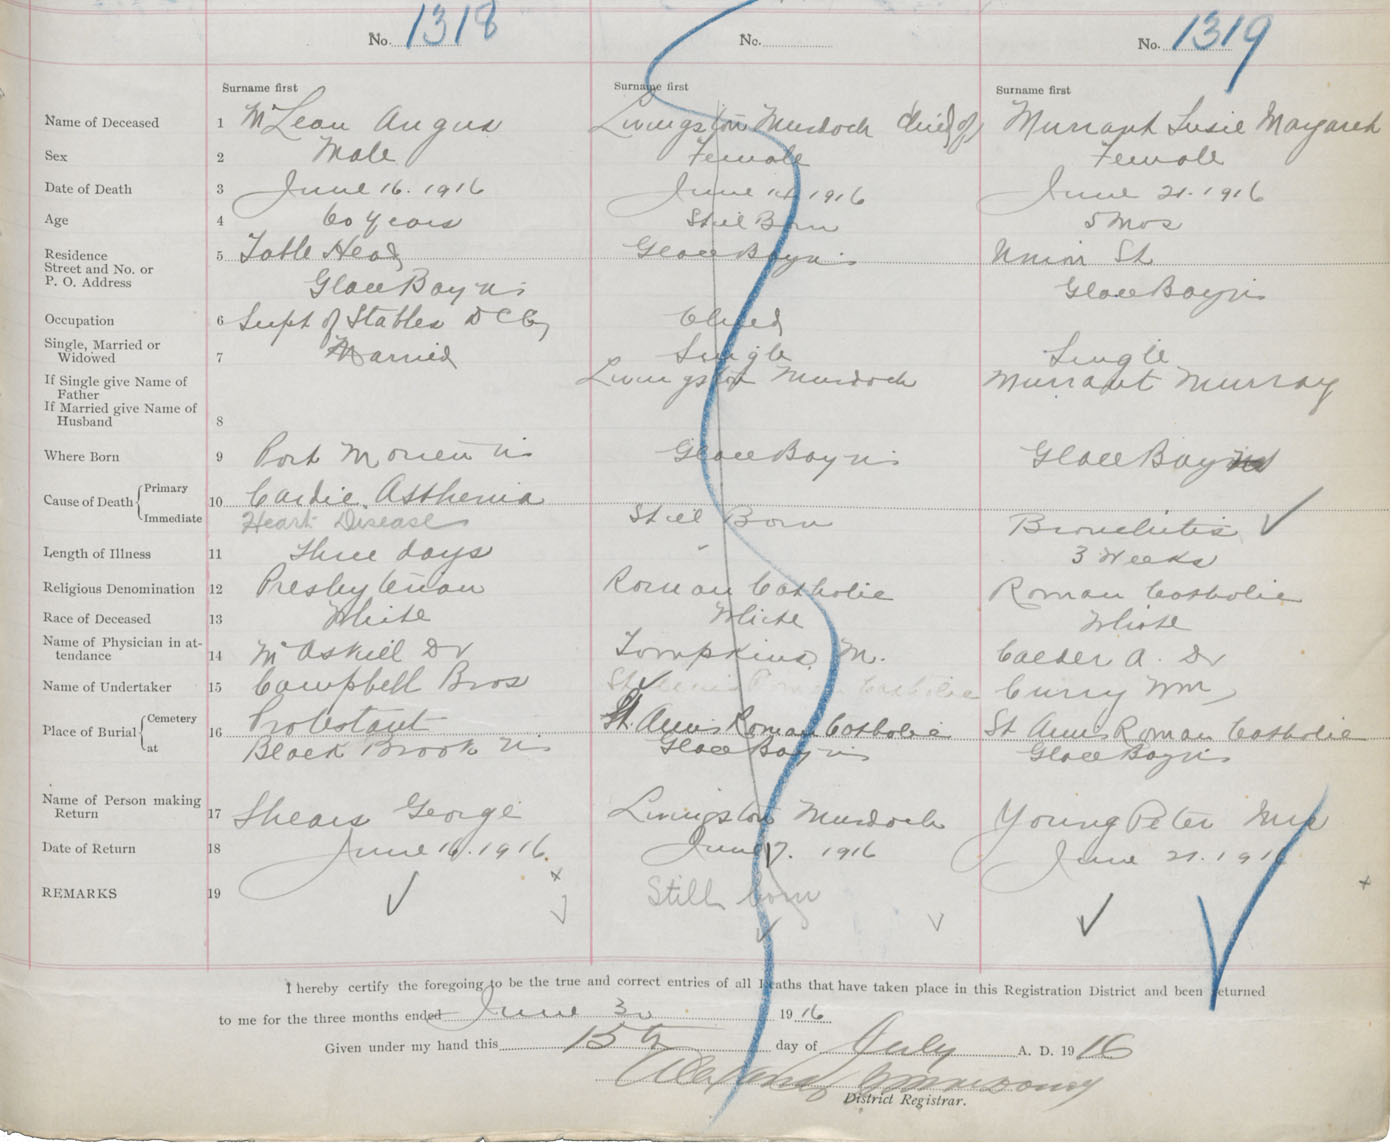 No. 1318 No. No. 1319
Surname first Surname first Surname first
Name of Deceased 1 McLean Angus Livingston Murdoch Child of Murrant Susie Margaret
Sex 2 Male Female Female
Date of Death 3 June 16. 1916 June 1916 June 21. 1916
Age 4 60 years Still Born 5 Mos
Residence 5 Table Head Glace Bay NS Union St
Street and No. or
P. O. Address Glace Bay NS Glace Bay NS
Occupation 6 Supt of Stables D C Co Child
Single, Married or
Widowed 7 Married Single Single
If Single give Name of Livingston Murdoch Murrant Murray
Father
If Married give Name of
Husband 8
Where Born 9 Port Morien NS Glace Bay NS Glace Bay NS
Cause of Death Primary 10 Cardic Asthenia
Immediate Heart Disease Still Born Bronchitis ✓
Length of Illness 11 Three days 3 Weeks
Religious Denomination 12 Presbyterian Roman Catholic Roman Catholic
Race of Deceased 13 White White White
Name of Physician in at-
tendance 14 McAskill Dr Tompkins M. Calder A. Dr
Name of Undertaker 15 Campbell Bros Curry Wm
Place of Burial Cemetery 16 Protestant St. Anns Roman Catholic St Anns Roman Catholic
at Black Brook NS Glace Bay NS Glace Bay NS
Name of Person making
Return 17 Shears George Livingston Murdoch Young Peter Mrs
Date of Return 18 June 16. 1916. June 17. 1916 June 21. 1916
REMARKS 19 Still born
I hereby certify the foregoing to be the true and correct entries of all Deaths that have taken place in this Registration District and been returned
to me for the three months ended June 30 1916
Given under my hand this 15th day of July A. D. 1916
District Registrar.